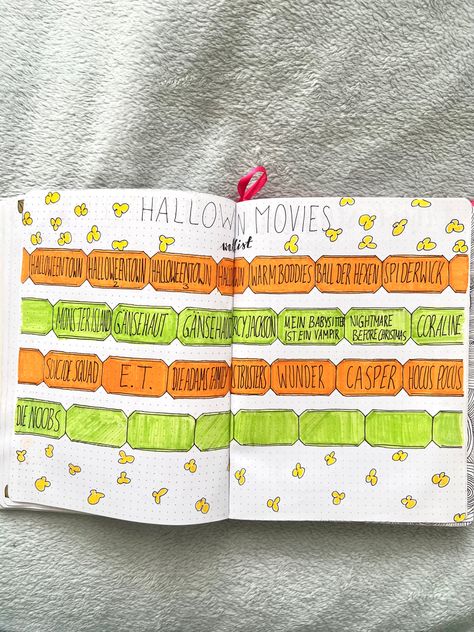 HALLOWN MOVIES
watchlist
HALLOWEENTOWN HALLOWEENTOWN 2 HALLOWEENTOWN 3 WARM BODIES BALL DER HEXEN SPIDERWICK
MONSTER ISLAND GÄNSEHAUT GÄNSEHAU CY JACKSON MEIN BABYSITTER IST EIN VAMPIR NIGHTMARE BEFORE CHRISTMAS CORALINE
SUICIDE SQUAD E.T. DIE ADAMS FAMI STBUSTERS WUNDER CASPER HOCUS POCUS
DIE NOOBS